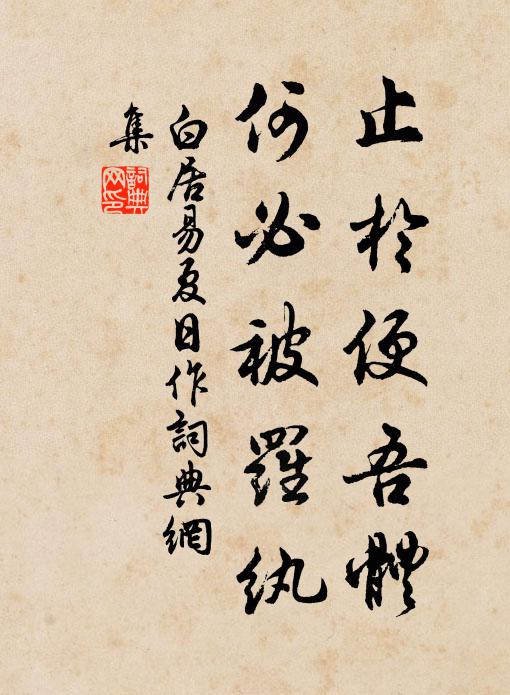 止於便吾體
何必被羅紈
白居易夏日作詞典網
集
詞典
网印